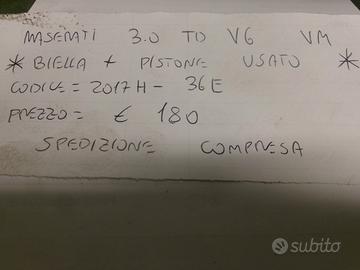 MASERATI 3.0 TD V6 VM
* BIELLA + PISTONE USATO *
CODICE = 2017H - 36E
PREZZO = € 180
SPEDIZIONE COMPRESA
subito